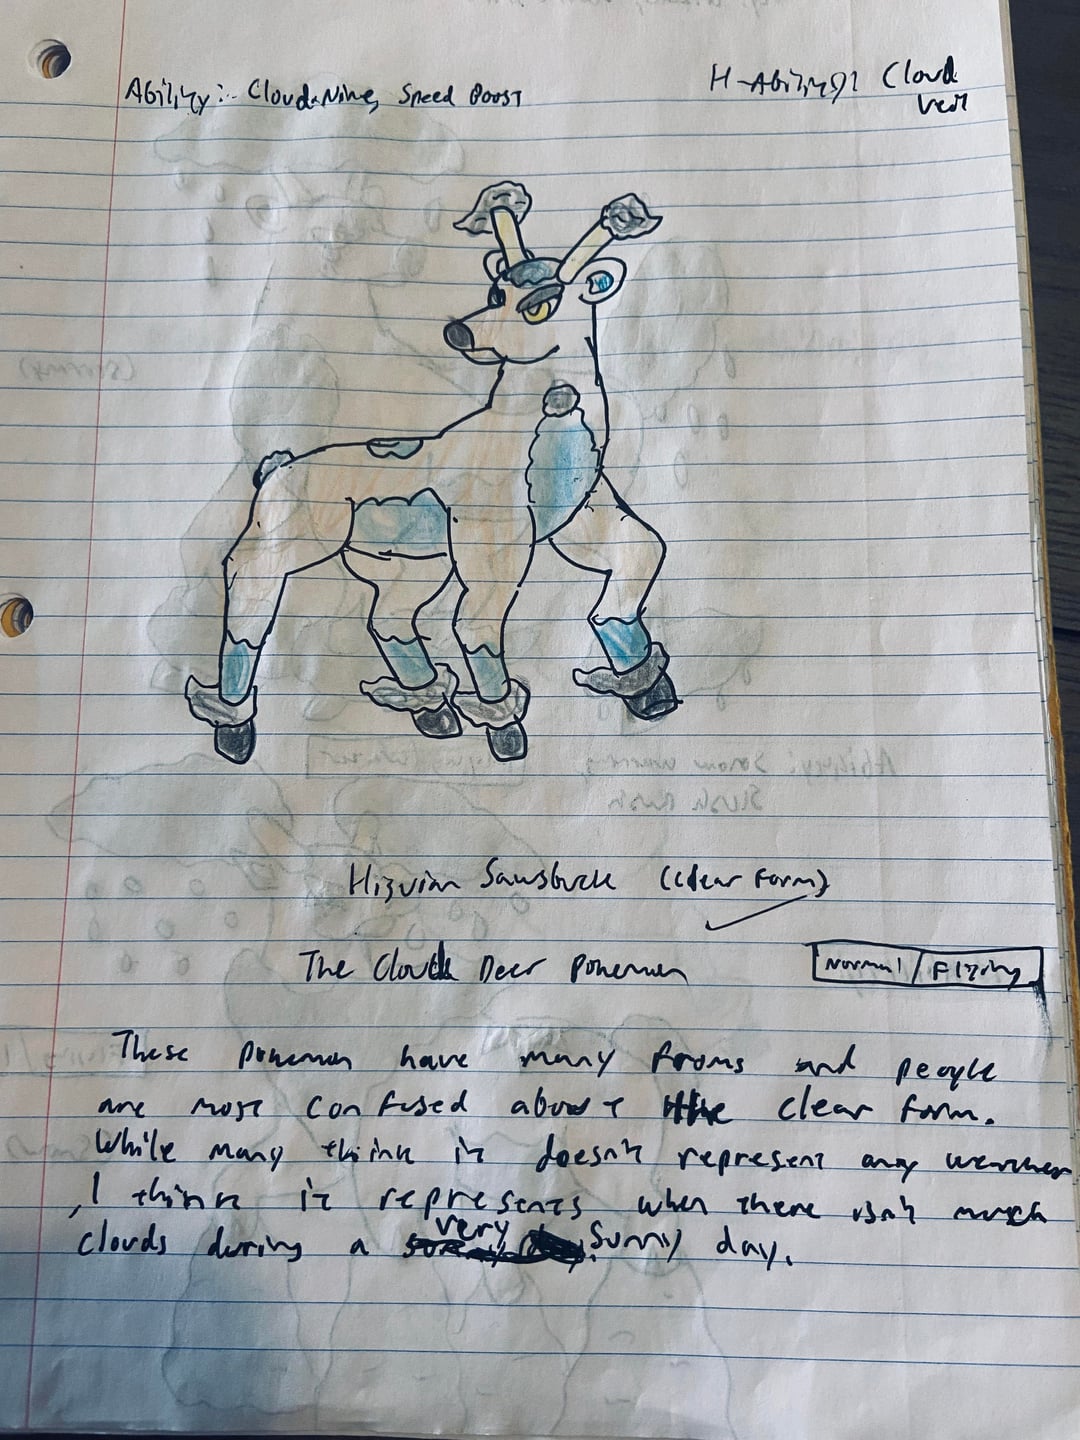 Ability: Cloud Nine, Speed Boost
H-Ability: Cloud
Veil
Hisuian Sawsbuck (Clear Form)
The Cloud Deer Pokemon
Normal / Flying
These Pokemon have many froms and people
are most confused about the clear form.
While many think it doesn't represent any weather
, I think it represents when there isn't much
clouds during a very Sunny day.
(Stormy)
Ability: Snow Warning,
Slush Rush